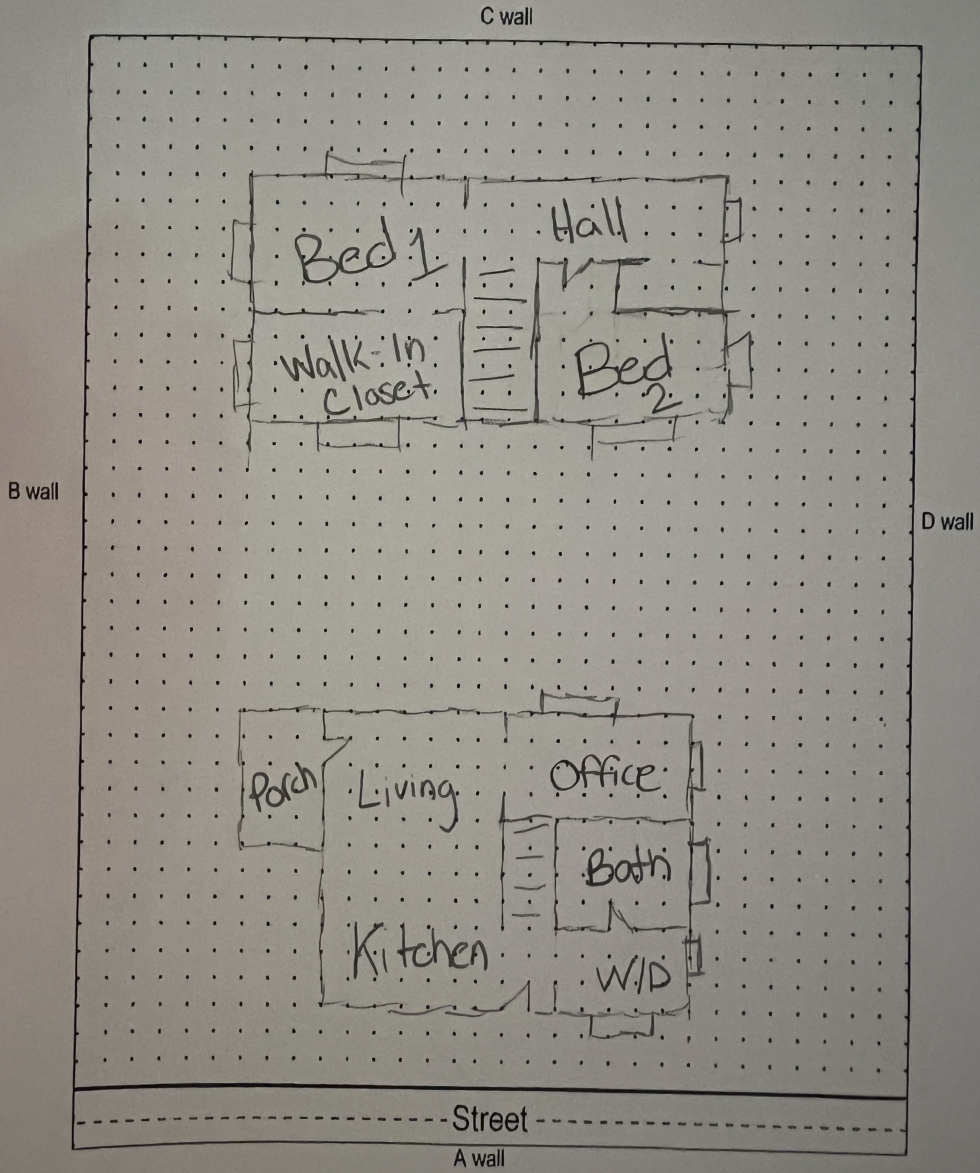 C wall
Hall
Bed 1
Walk-In
Closet
Bed
2
B wall
D wall
Porch
Living
Office
Bath
Kitchen
W/D
Street
A wall